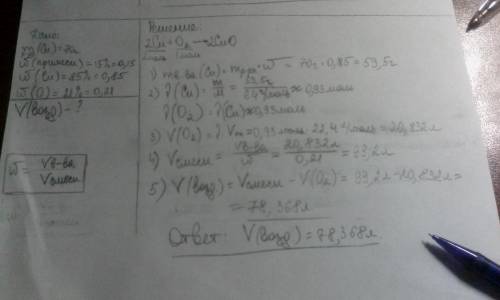 Дано:
m(Cu)=70г
ω(примеси)=15%=0,15
ω(Cu)=85%=0,85
ω(O)=21%=0,21
V(возд)-?
ω = Vв-ва / Vсмеси
Решение:
2Cu+O₂→2CuO
2моль 1моль
1) mв-ва(Cu)=mпр·ω = 70г·0,85=59,5г
2) ν(Cu)=m/M=59,5г/64г/моль≈0,93моль
ν(O₂)=ν(Cu)=0,93моль
3) V(O₂)=ν·Vm=0,93моль·22,4л/моль=20,832л
4) Vсмеси=Vв-ва/ω=20,832л/0,21=99,2л
5) V(возд)=Vсмеси-V(O₂)=99,2л-20,832л=
=78,368л
Ответ: V(возд)=78,368л